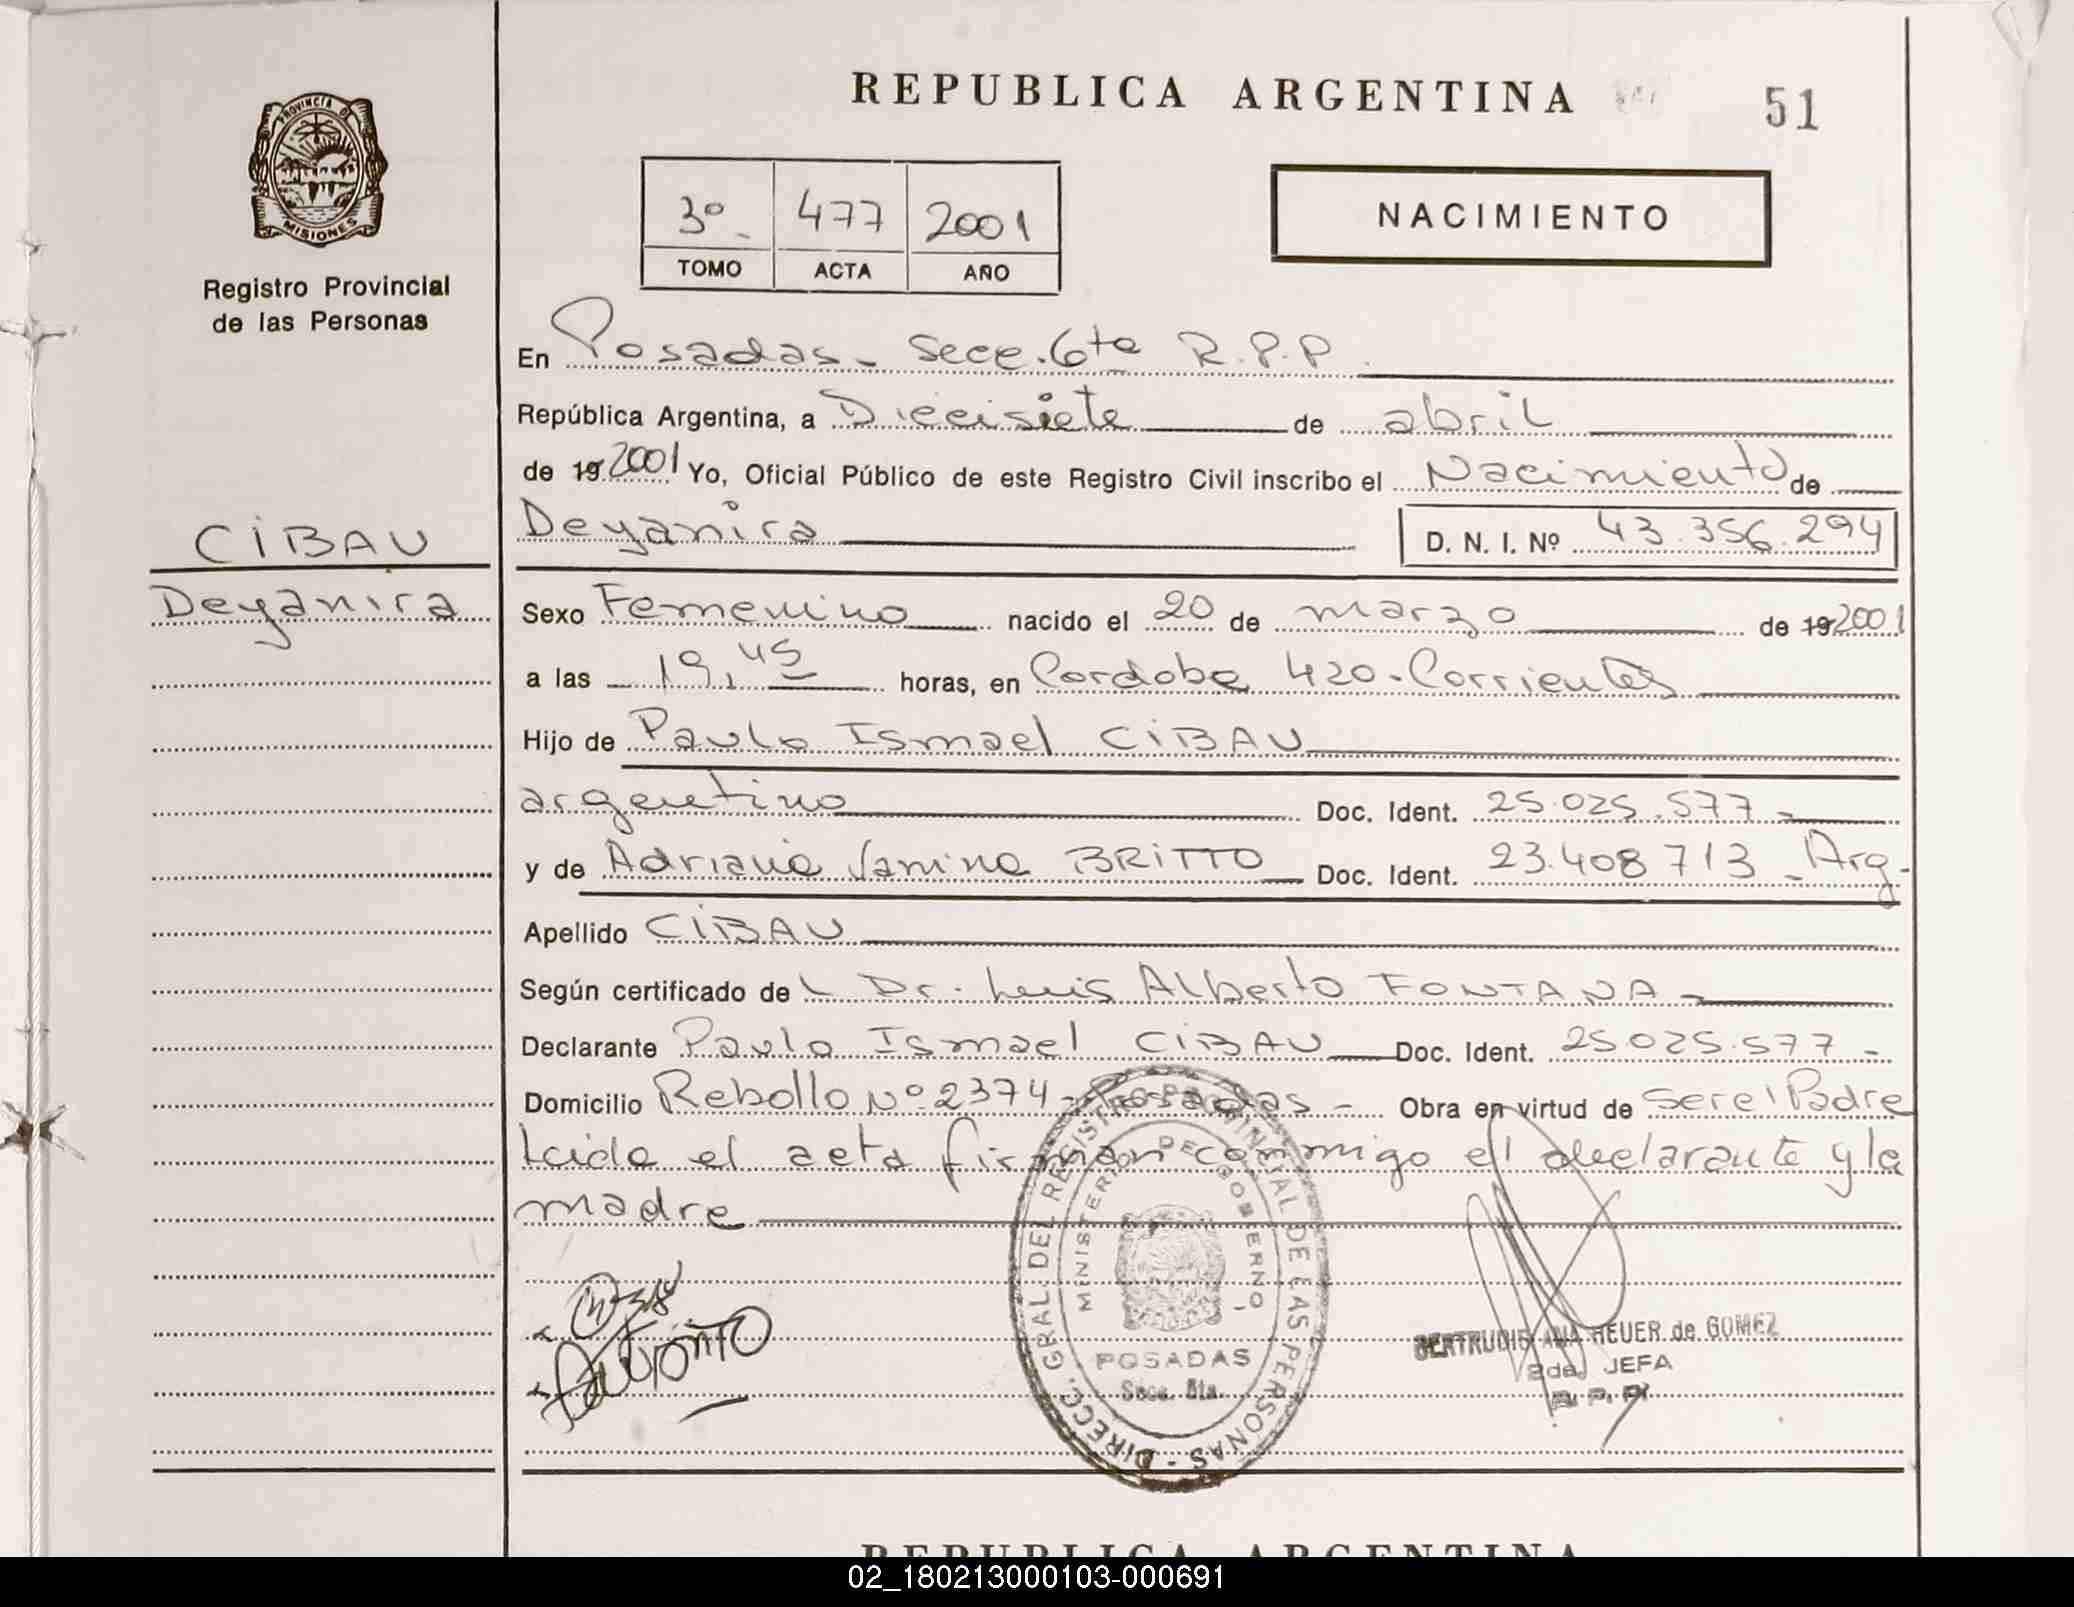 REPUBLICA ARGENTINA
51
PROVINCIA DE
MISIONES
Registro Provincial
de las Personas
3º 477 2001
TOMO ACTA AÑO
NACIMIENTO
En Posadas - Secc. 6ta R.P.P.
República Argentina, a Diecisiete de abril
de 19 2001 Yo, Oficial Público de este Registro Civil inscribo el Nacimiento de
Deyanira D. N. I. Nº 43.356.294
CIBAU
Deyanira
Sexo Femenino nacido el 20 de marzo de 19 2001
a las 19,45 horas, en Cordoba 420 - Corrientes
Hijo de Paulo Ismael CIBAU
argentino Doc. Ident. 25.025.577 -
y de Adriana Janina BRITTO Doc. Ident. 23.408 713 - Arg -
Apellido CIBAU
Según certificado del Dr. Luis Alberto FONTANA -
Declarante Paulo Ismael CIBAU Doc. Ident. 25.025.577 -
Domicilio Rebollo Nº 2374 - Posadas - Obra en virtud de ser el Padre
Leida el acta firman conmigo el declarante y la
madre
DIRECC. GRAL. DEL REGISTRO PROVINCIAL DE LAS PERSONAS -
MINISTERIO DE GOBIERNO
POSADAS
Secc. 6ta.
GERTRUDIS ANA HEUER de GOMEZ
2da. JEFA
R. P. P.
REPUBLICA ARGENTINA
02_180213000103-000691